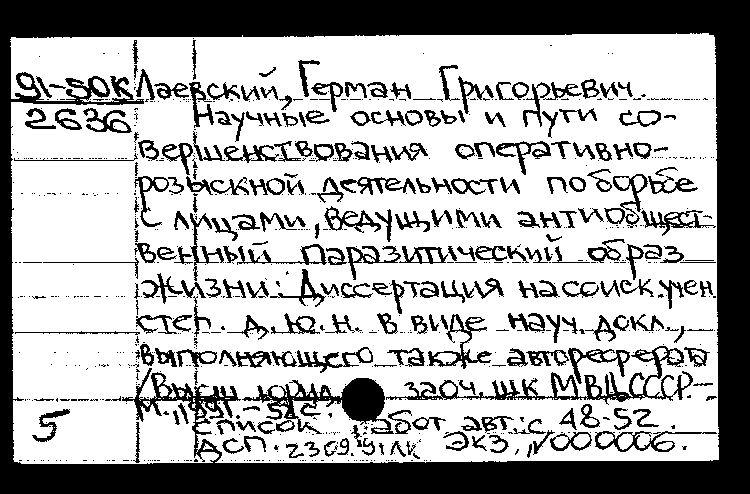 91-50К Лаевский, Герман Григорьевич.
2636 Научные основы и пути со-
вершенствования оперативно-
розыскной деятельности по борьбе
с лицами, ведущими антиобщест-
венный паразитический образ
жизни: Диссертация на соиск. учен
степ. д. ю. н. в виде науч. докл.,
выполняющего также автореферата
/Высш юрид. заоч. шк МВД СССР.-
М., 1991.- 52 с.
5 Список работ авт.: с 48-52.
ДСП. 23 09. 91 ЭКЗ. N 000006.